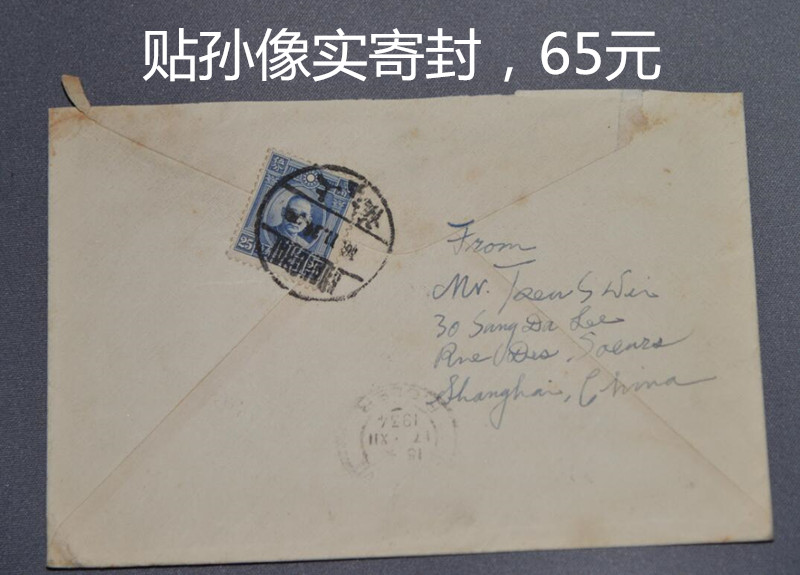 贴孙像实寄封，65元
25
From
Mr.
30 Sang Da Lee
Rue Des Soeurs
Shanghai, China
15
17 - XII
1934